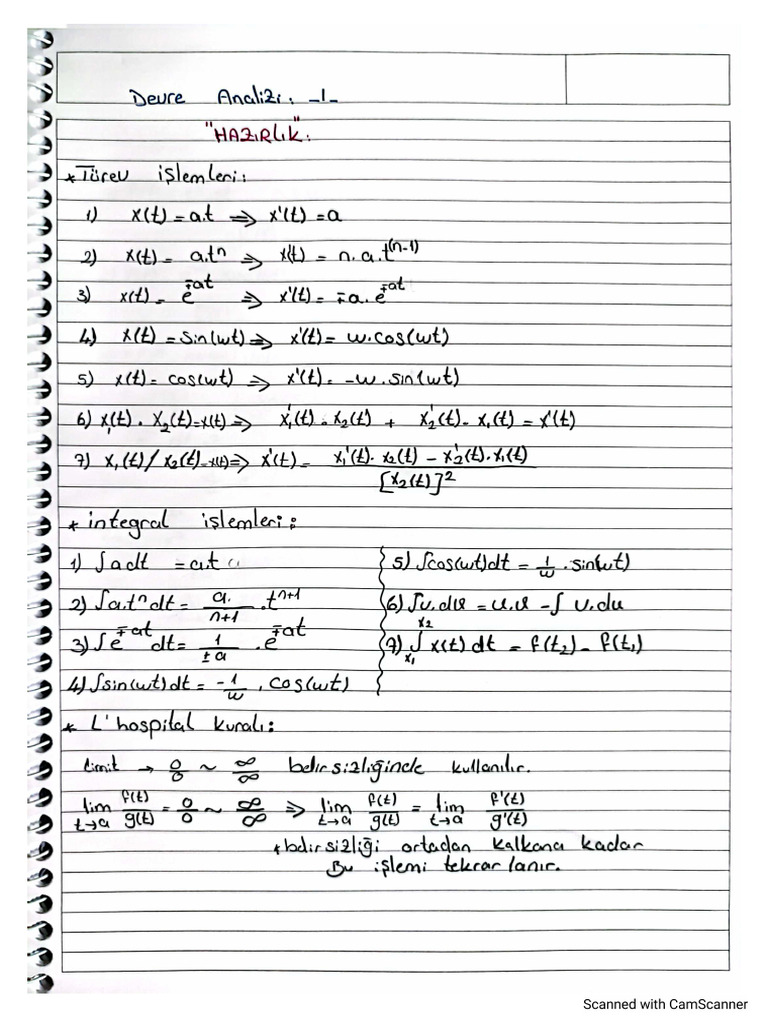 Devre Analizi: -1-
"HAZIRLIK":
* Türev işlemleri:
1) x(t) = a.t ⇒ x'(t) = a
2) x(t) = a.tⁿ ⇒ x'(t) = n.a.t⁽ⁿ⁻¹⁾
3) x(t) = e^∓at ⇒ x'(t) = ∓a.e^∓at
4) x(t) = sin(wt) ⇒ x'(t) = w.cos(wt)
5) x(t) = cos(wt) ⇒ x'(t) = -w.sin(wt)
6) x₁(t) . x₂(t) = x(t) ⇒ x₁'(t) . x₂(t) + x₂'(t) . x₁(t) = x'(t)
7) x₁(t) / x₂(t) = x(t) ⇒ x'(t) = x₁'(t) . x₂(t) - x₂'(t) . x₁(t) / [x₂(t)]²
* integral işlemleri:
1) ∫a dt = a.t
2) ∫a.tⁿ dt = a/n+1 . tⁿ⁺¹
3) ∫e^∓at dt = 1/±a . e^∓at
4) ∫sin(wt)dt = -1/w . cos(wt)
5) ∫cos(wt)dt = 1/w . sin(wt)
6) ∫u.dv = u.v - ∫v.du
7) ∫x₁^x₂ x(t) dt = f(t₂) - f(t₁)
* L'hospital kuralı:
Limit → 0/0 ~ ∞/∞ belirsizliğinde kullanılır.
lim t→a f(t)/g(t) = 0/0 ~ ∞/∞ ⇒ lim t→a f(t)/g(t) = lim t→a f'(t)/g'(t)
* belirsizliği ortadan kalkana kadar
Bu işlemi tekrarlanır.
Scanned with CamScanner